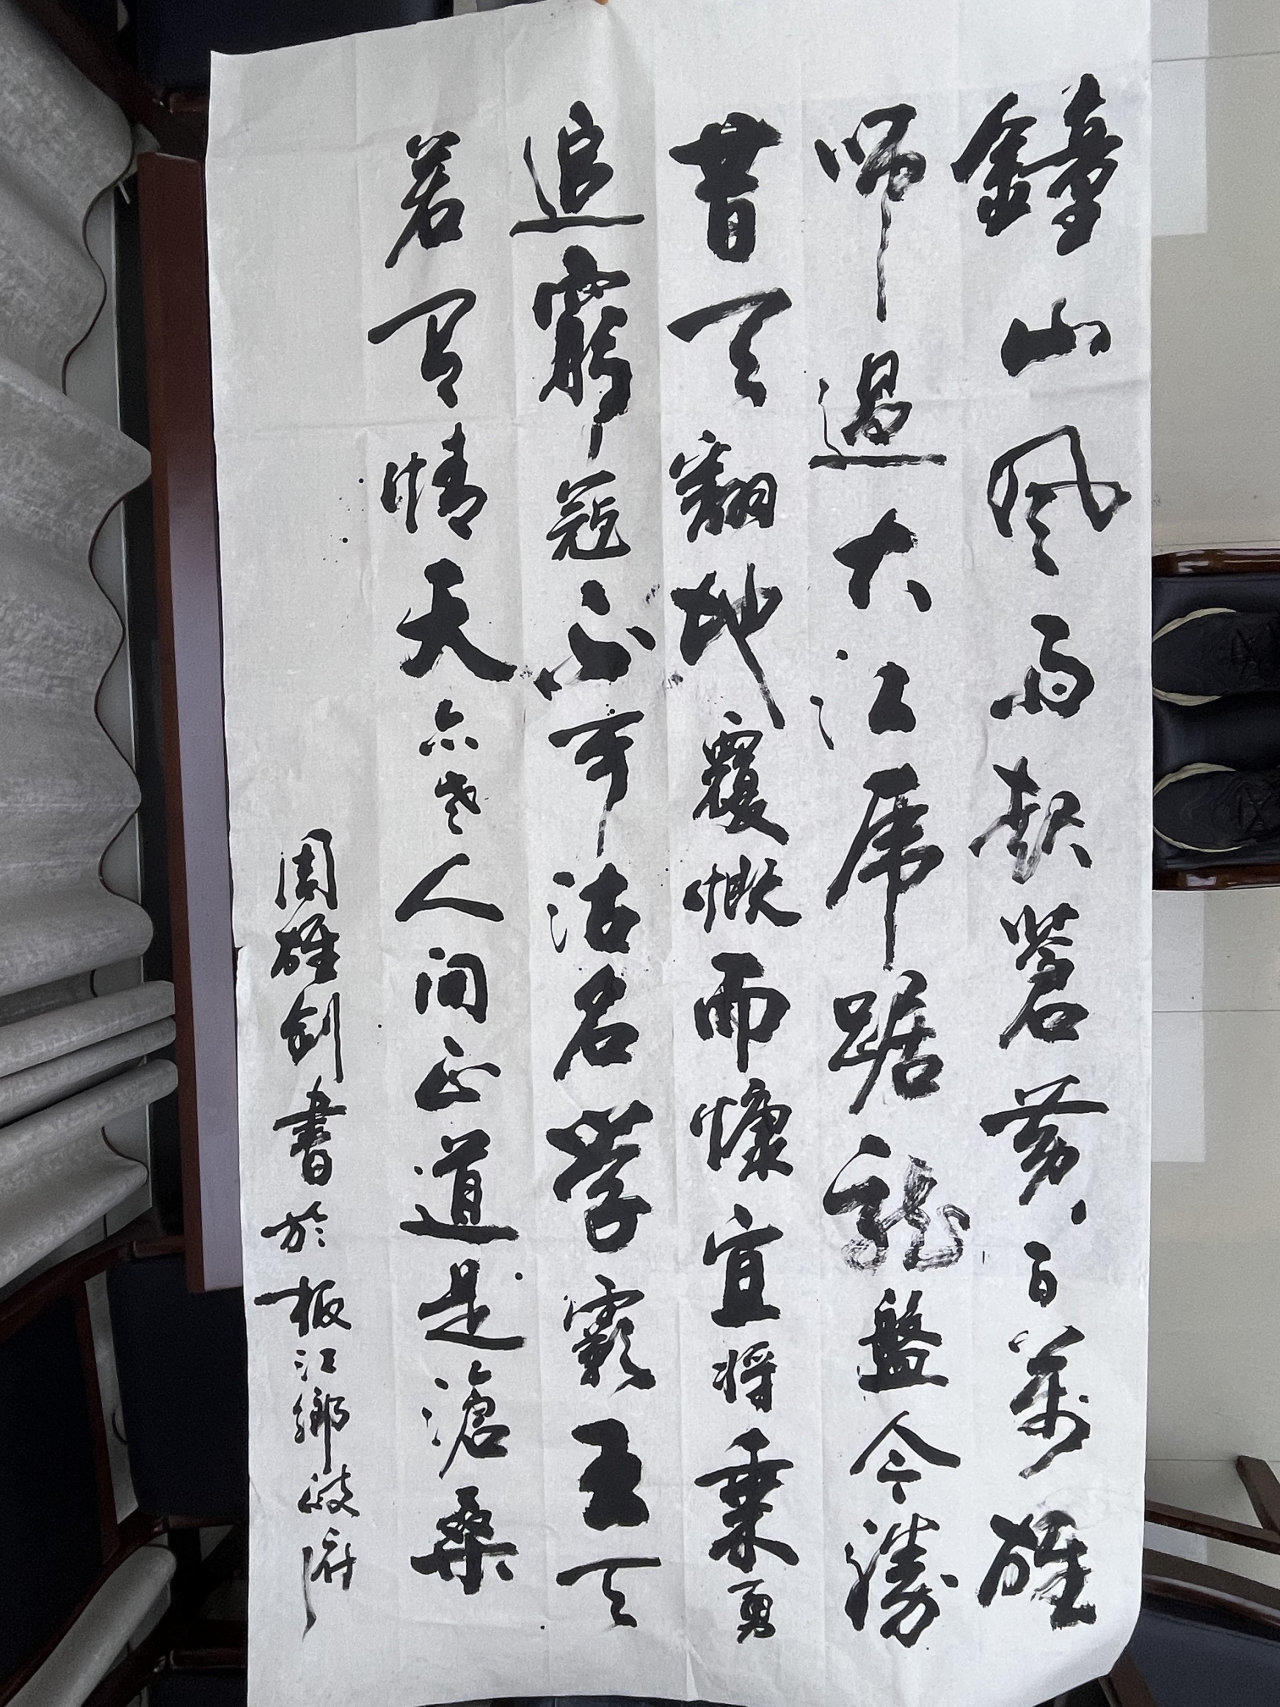 鐘山风雨起蒼黄百萬雄
師過大江虎踞龍盤今勝
昔天翻地覆慨而慷宜將乘勇
追窮寇不可沽名學霸王天
若有情天亦老人間正道是滄桑
周雄剑書於板江鄉政府